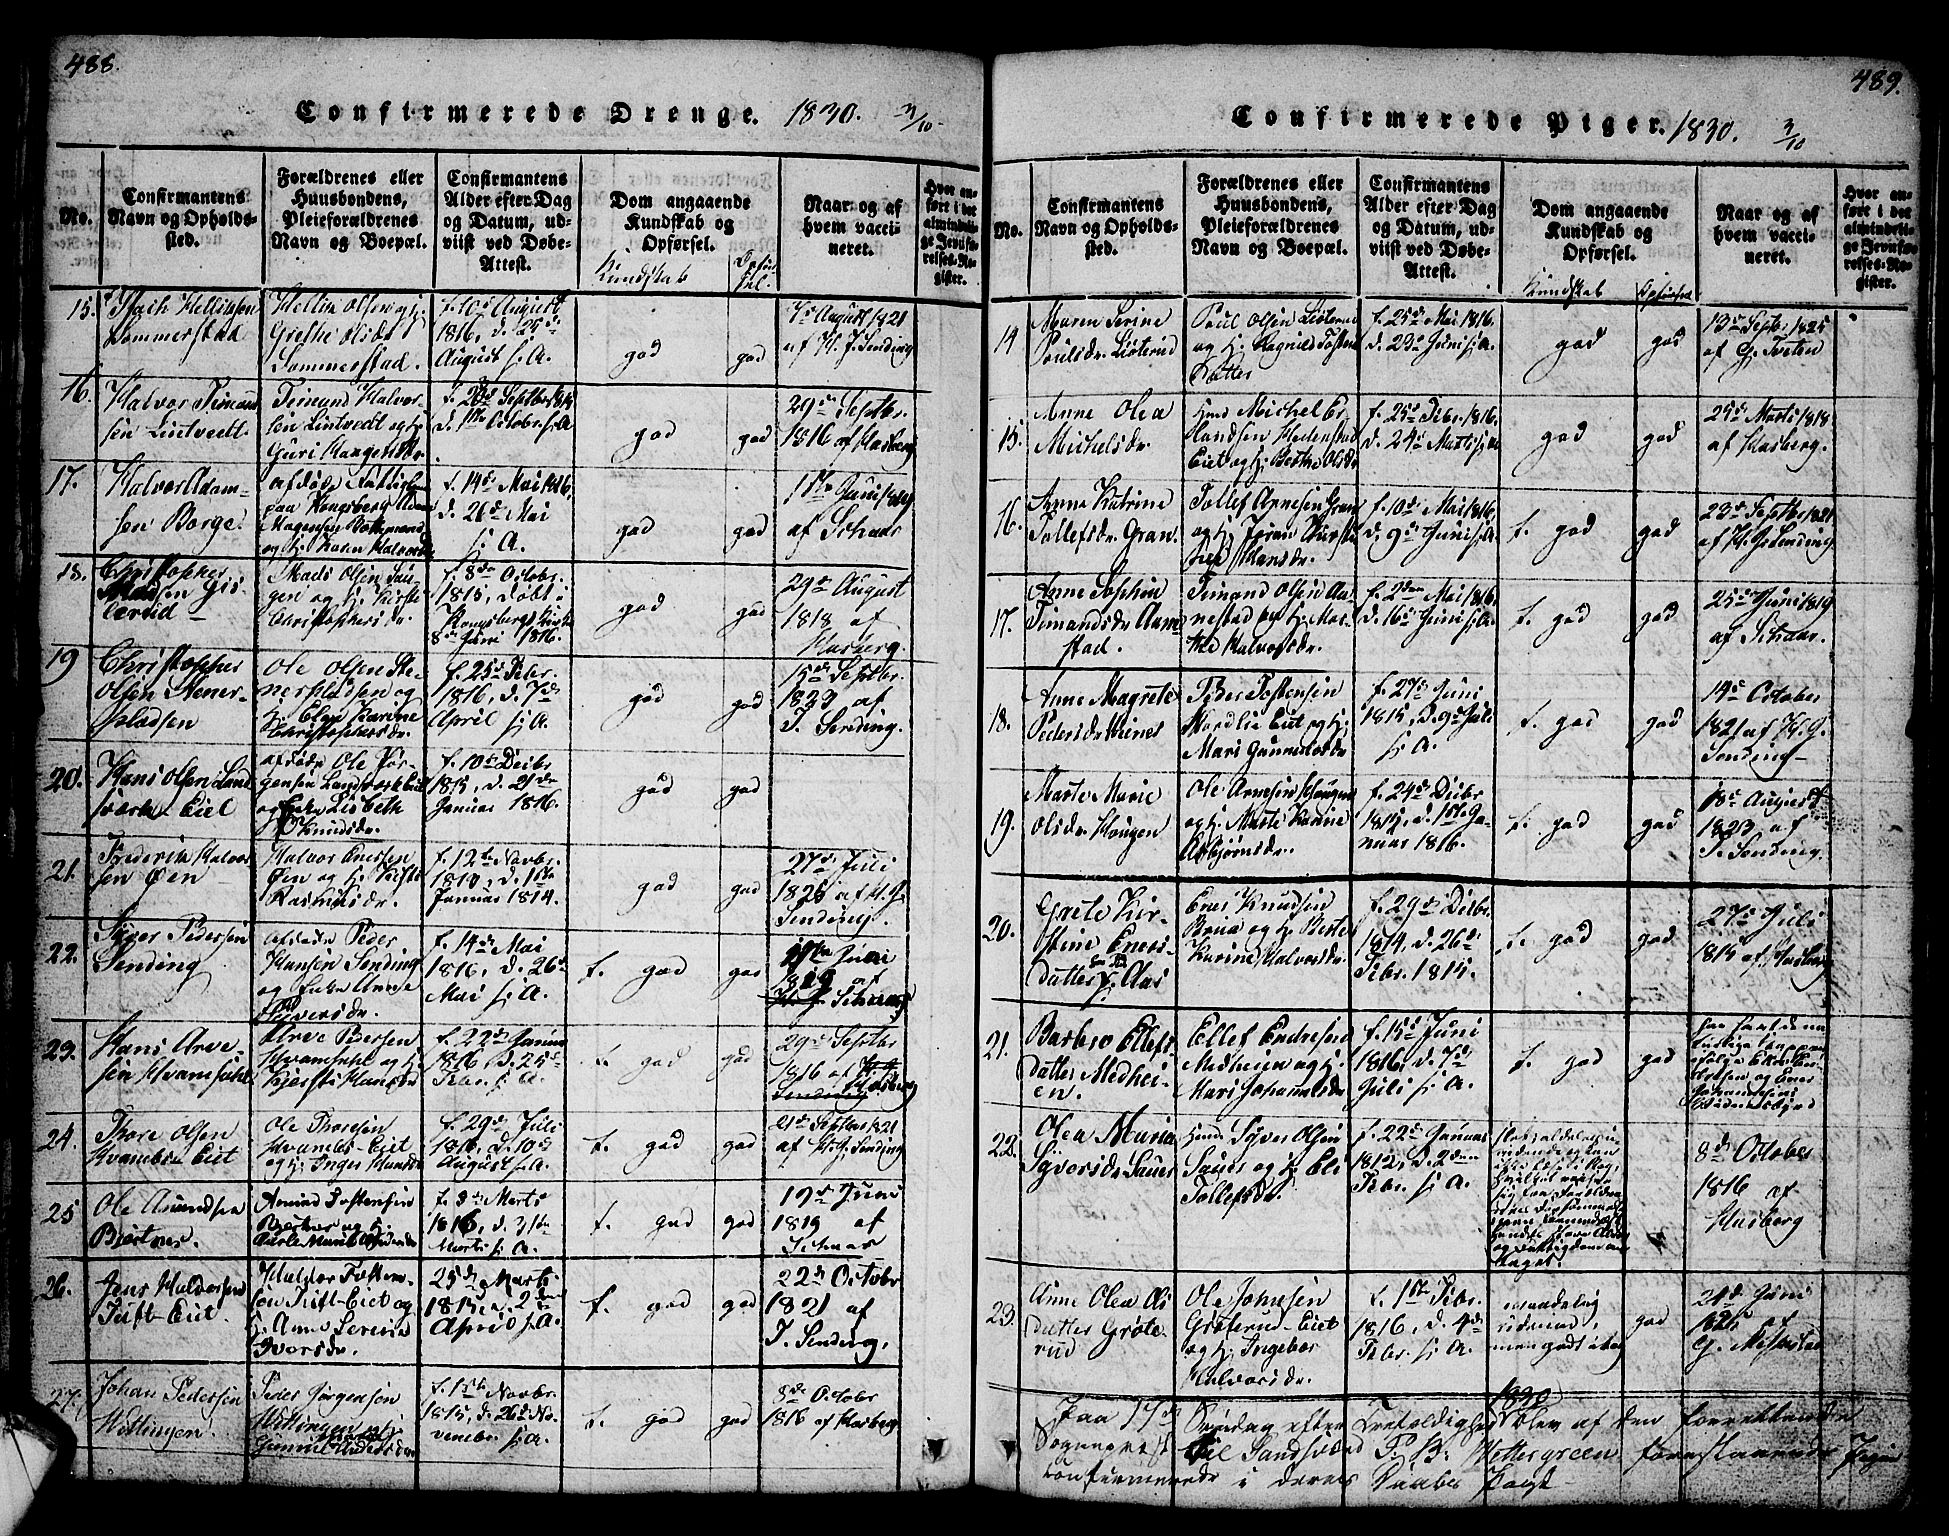 488.
Confirmerede Drenge. 1830. 3/10
No.
Confirmantens
Navn og Opholds-
sted.
Forældrenes eller
Huusbondens,
Pleieforældrenes
Navn og Boepæl.
Confirmantens
Alder efter Dag
og Datum, ud-
viist ved Døbe-
Attest.
Dom angaaende
Kundskab og
Opførsel.
Kundskab
Opførsel.
Naar og af
hvem vacci-
neret.
Hvor an-
ført i det
almindeli-
ge Jevnfø-
relses-Re-
gister.
15.
Sommerstad
Grethe Olsdr
Sommerstad.
f. 10de August
1816, d. 25de
August s. A.
god
god
7de August 1821
af H. J. Sending
16.
Halvor Timans
sen Lintvedt.
Timund Halvor-
sen Lintvedt og h.
Guri Haagensdr.
d. 1ste Octobr. s. A
god
god
29de Septbr.
1816 af Hasberg
17.
Halvor Adam-
sen Borge.
paa Kongsberg Adam
og h. Karen Halvorsdr
f. 14de Mai 1816.
d. 26de Mai
s. A.
god
god
11te Juni 1819
af Schaar
18.
Christopher
Madsen Gis-
lerud
Mads Olsen
gen og h. Kirsti
Christophersdr.
f. 8de Octobr.
1815, døbt i
Kongsbergs Kirke
8de Juni 1816.
god
god
29de August
1818 af
Hasberg.
19
Christopher
Olsen Stener-
pladsen
Ole Olsen Ste-
nerspladsen og
h. Elen Karine
Christophersdr.
f. 25de Febr.
1816, d. 7de
April s. A.
god
god
15de Septbr.
1823 af
J. Sending.
20.
Hans Olsen Land
sverk Eiet
afdøde Ole Jør-
gensen Landsverk Eiet
og Enke Lisbeth
Knudsdr.
f. 10de Decbr
1815, d. 21de
Januar 1816.
god
god
21.
Frederik Halvor
sen Øen
Halvor Enersen
Øen og h. Kirsti
Rasmusdr.
f. 12te Novbr.
d. 1ste
Januar 1814.
god
god
27de Juli
1826 af H. G.
Sending.
22.
Iver Pedersen
Sending
afdøde Peder
Hansen Sending
og Enke Anne
Siversdr.
f. 14de Mai
1816, d. 26de
Mai s. A.
f. god
god
11te Juni
1819 af
Schaar
23.
Hans Arve-
sen Kvamsahle
Arve Bersen
Kvamsahle og h.
Kjersti Hansdr
f. 22de Januar
1816, d. 25de
Febr. s. A.
f. god
god
29de Septbr
1816 af
Hasberg
24.
Thore Olsen
Kvambs Eiet
Ole Thoresen
Kvambs-Eiet
og h. Inger Hansdr
f. 29de Juli
1816, d. 10de
August s. A.
f. god
god
21de Septbr 1821
af H. J. Sending
25
Ole Amundsen
Bjertnes.
Amund Tostensen
Bjertnes og h.
f. 3de Marts
1816, d. 31te
Marts s. A.
f. god
god
19de Juni
1819 af
Schaar
26.
Jens Halvorsen
Tuft-Eiet.
Halvor Tosten-
sen Tuft-Eiet og
h. Anne Serine
Iversdr.
25de Marts
1815, d. 2den
April s. A.
f. god
god
22de Octobr
1821 af
J. Sending.
27.
Johan Pedersen
Wittingen.
Peder Jørgensen
Wittingen og h.
Gunnild Andersdr
f. 15de Novbr.
1815, d. 26de No-
vember s. A.
f. god
god
8de Octobr
1816 af Hasberg.
489.
Confirmerede Piger. 1830. 3/10
No.
Confirmantens
Navn og Opholds-
sted.
Forældrenes eller
Huusbondens,
Pleieforældrenes
Navn og Boepæl.
Confirmantens
Alder efter Dag
og Datum, ud-
viist ved Døbe-
Attest.
Dom angaaende
Kundskab og
Opførsel.
Kundskab
Opførsel
Naar og af
hvem vacci-
neret.
Hvor an-
ført i det
almindeli-
ge Jevnfø-
relses-Re-
gister.
14
Maren Serine
Poulsdr. Listerud
Poul Olsen Listerud
og h. Ragnild Tosten
Datter
f. 25de Mai 1816.
d. 23de Juni s. A.
god
god
13de Septbr 1825
af G. Tveten
15.
Anne Olea
Michelsdr.
Huusmd Michel Er-
landsen Hedenstad
Eiet og h. Berthe Olsdr
f. 25de Febr. 1816.
d. 24de Marts s. A
god
god
25de Marts 1818
af Hasberg.
16.
Anne Katrine
Tollefsdr Gran.
Tollef Arnesen Gran
og h. Jøran Chirsti
Hansdr.
f. 10de Mai 1816.
d. 9de Juni s. A.
f. god
god
23de Septbr 1821
17.
Anne Sophie
Timandsdr Aam-
stad.
Timand Olsen Aa-
mestad og h. Mar-
the Halvorsdr.
f. 2den Mai 1816.
d. 16de Juni s. A.
f. god
god
25de Juni 1819
af Schaar.
18.
Anne Magrete
Pedersdr Mienes
Peder Tostensen
Mordlie Eiet og h.
Mari Gunnulsdr.
f. 27de Juni
1815, d. 9de Juli
s. A.
f. god
god
14de October
1821 af H. G.
Sending
19.
Marte Marie
Olsdr. Hougen
Ole Arnesen Hougen
og h. Marte Karine
Asbjørnsdr.
f. 24de Decbr
1815, d. 1ste Ja-
nuar 1816.
f. god
god
18de August
1823 af
J. Sending.
20.
Grete Kir-
stine Eners-
datter Aas
Ener Knudsen
Brua og h. Berte
Karine Halvorsdr.
f. 29de Decbr.
1814, d. 26de
Febr. 1815.
f. god
god
27de Juli
1815 af Hasberg
21.
Barbro Ellefs
datter Medhei-
en.
Ellef Endresen
Medheien og h.
Mari Johannesdr
f. 15de Juni
1816, d. 7de
Juli s. A.
f. god
god
22.
Olea Maria
Syversdr Sauer
Huusmd Syver Olsen
Sauer og h. Eli
Tollefsdr.
f. 22de Januar
1812, d. 2den
Febr. s. A.
8de October
1816 af
Hasberg
23.
Anne Olea Ols
datter Grøte-
rud
Ole Johnsen
Grøterud-Eiet
og h. Ingebor
Halvorsdr.
f. 1ste Febr.
1816, d. 4de
Febr. s. A.
maadelig
vidende,
men godt
god
24de Juni
1825 af
G.
Paa 17de Søndag efter Trefoldighed 1830 bleve af den forrettende
Sognepræst til Sandsværd P. B. Wettergreen forestaaende Piger
confirmerede i deres Daabs Pagt